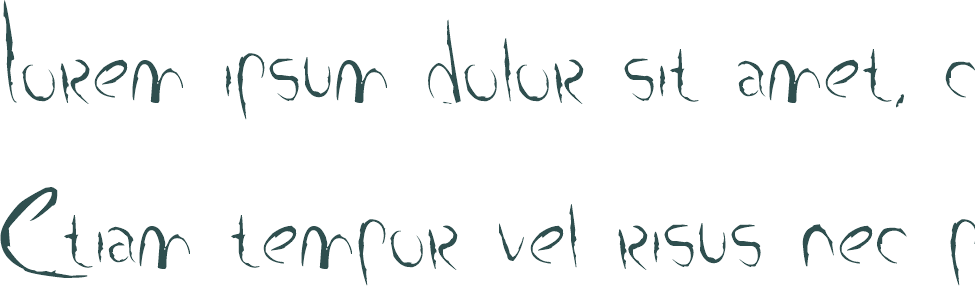 Lorem ipsum dolor sit amet, c
Etiam tempor vel risus nec p